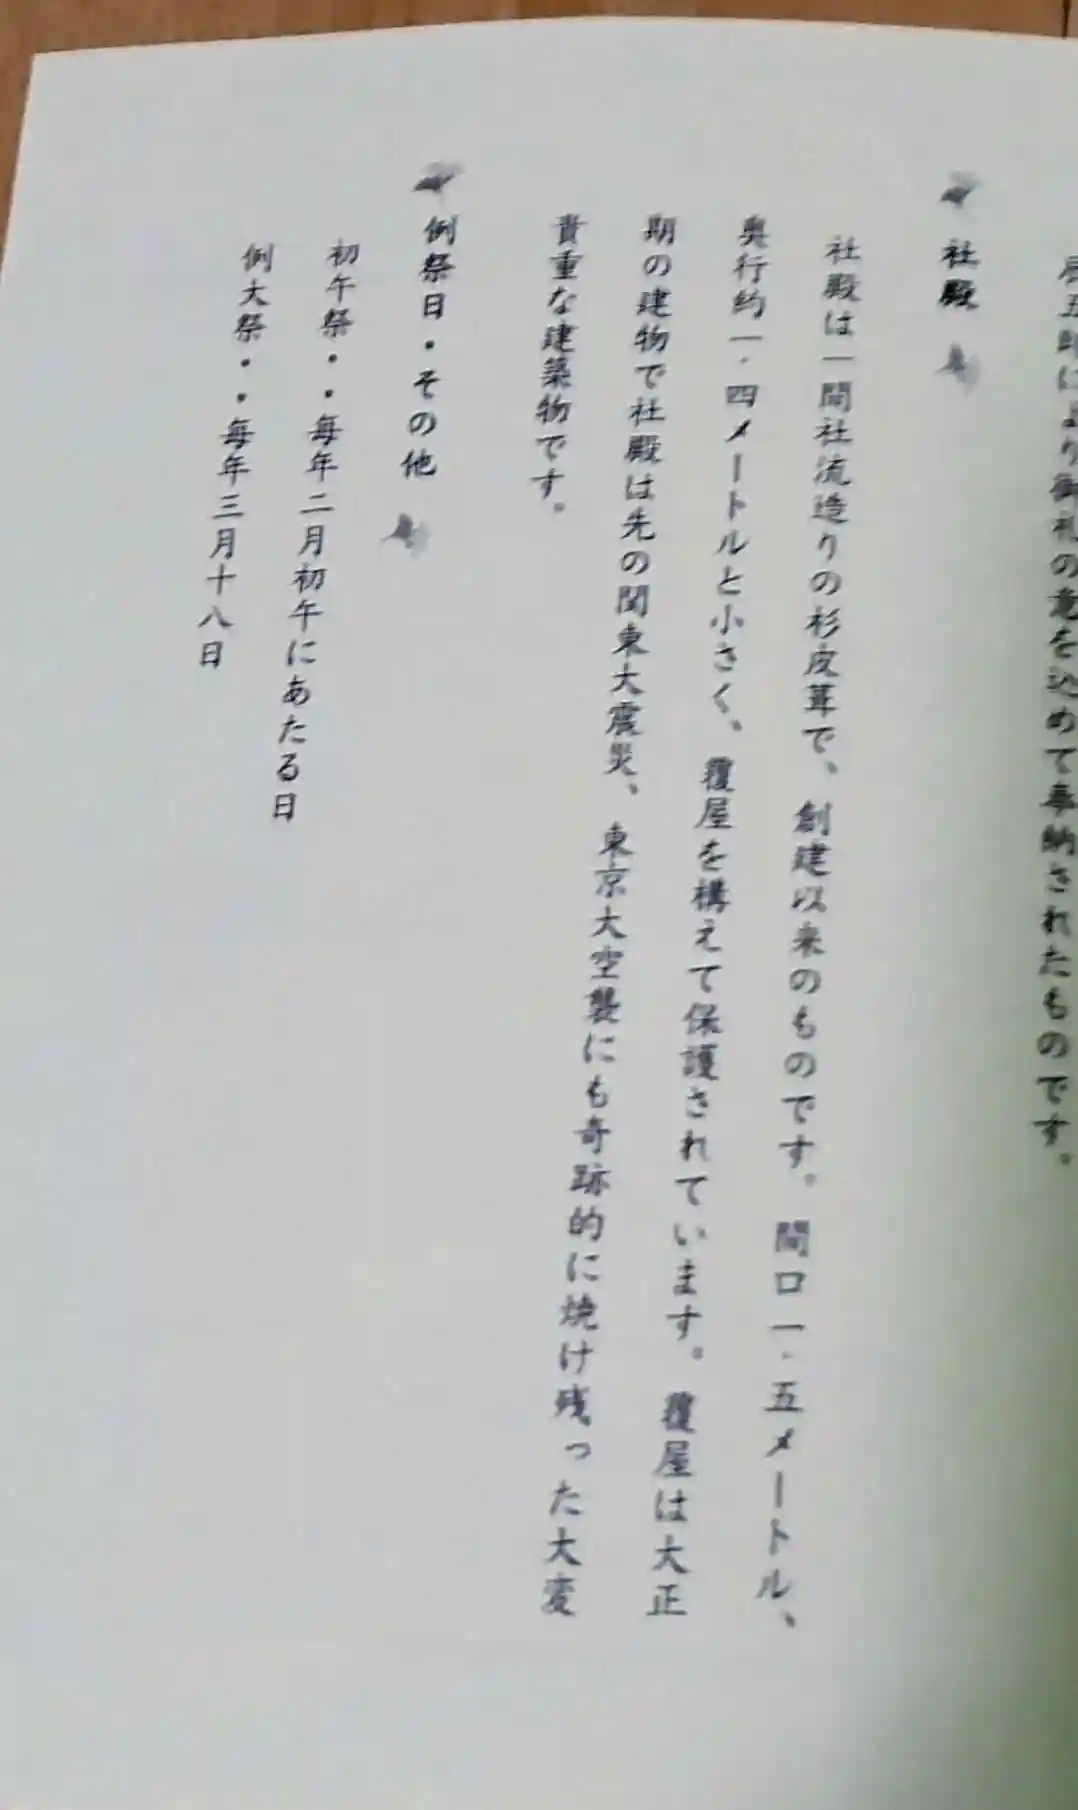 辰五郎により御礼の意を込めて奉納されたものです。
社殿
社殿は一間社流造りの杉皮葺で、創建以来のものです。間口一・五メートル、
奥行約一・四メートルと小さく、覆屋を構えて保護されています。覆屋は大正
期の建物で社殿は先の関東大震災、東京大空襲にも奇跡的に焼け残った大変
貴重な建築物です。
例祭日・その他
初午祭・・毎年二月初午にあたる日
例大祭・・毎年三月十八日